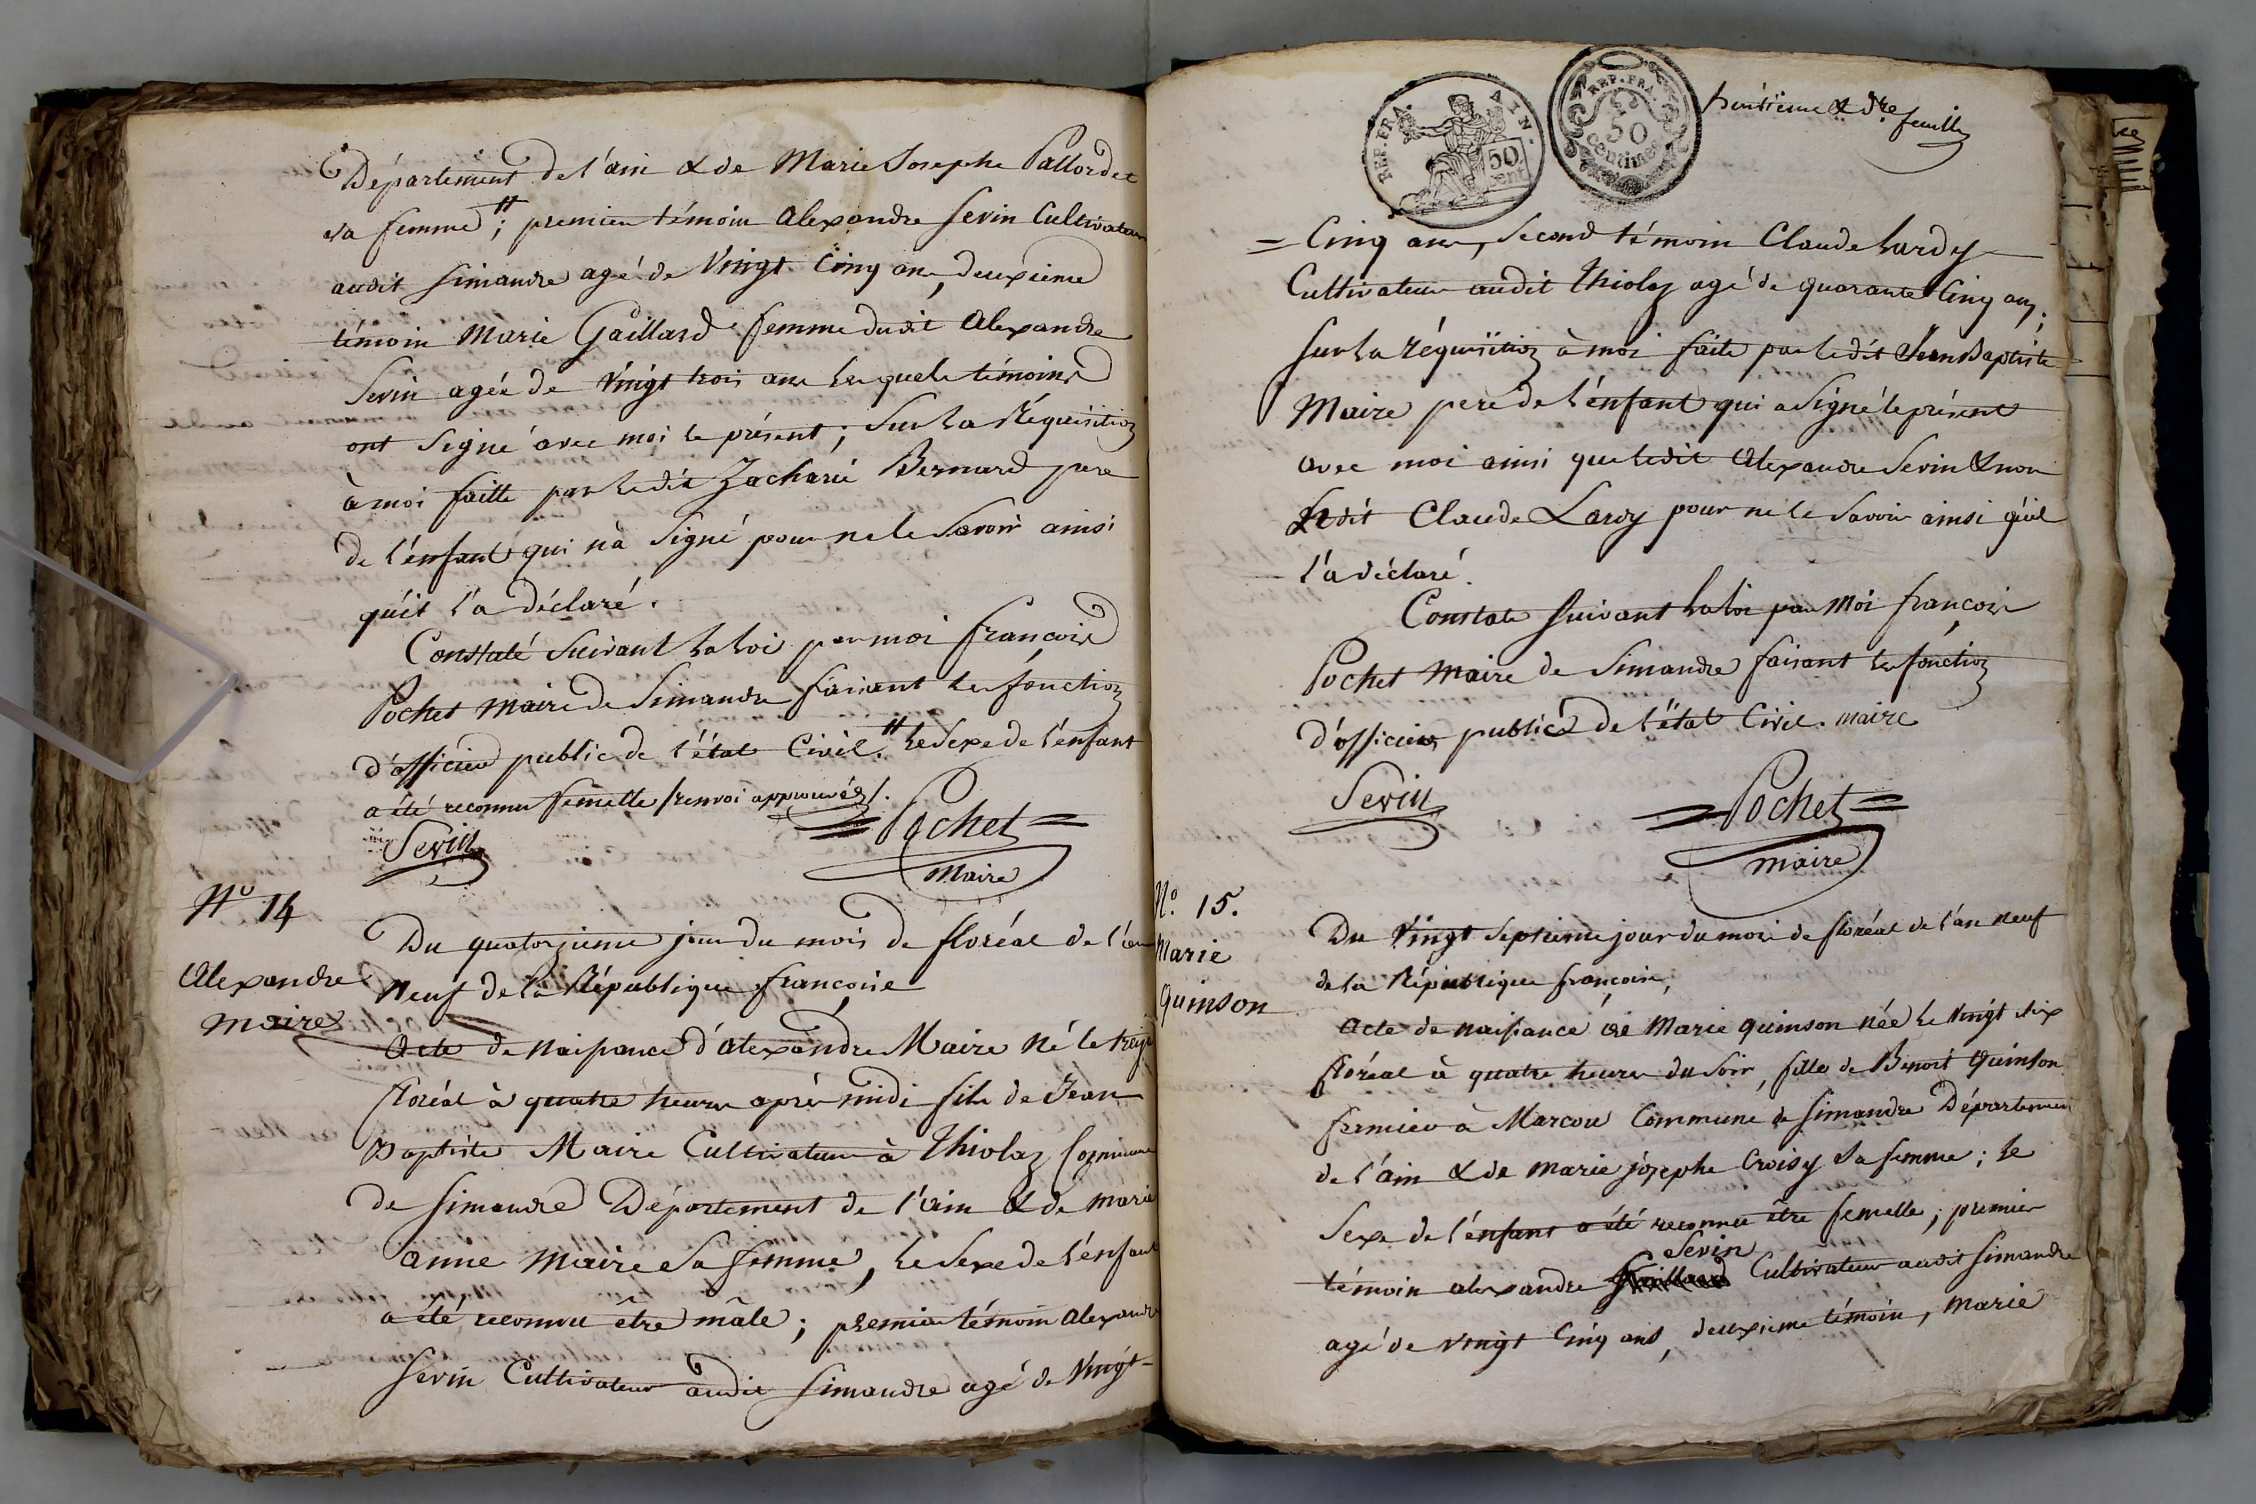 Département de l'ain & de Marie Josephe Pallordet
sa femme #; premier témoin Alexandre Sevin Cultivateur
audit Simandre agé de Vingt Cinq ans, deuxième
témoin Marie Gaillard femme dudit Alexandre
Sevin agée de Vingt trois ans lesquels témoins
ont Signé avec moi le présent; Sur la Réquisition
à moi faitte par ledit Zacharie Bernard pere
de l'enfant qui n'a Signé pour ne le Savoir ainsi
qu'il l'a déclaré.
Constaté Suivant la Loi par moi François
Pochet Maire de Simandre faisant les fonction
d'officier public de l'état Civil. # le Sexe de l'enfant
a été reconnu femelle /renvoi approuvé/.
Sevin
= Pochet =
Maire
No 14
Alexandre
Maire
Du quatorzieme jour du mois de floréal de l'an
Neuf de la République françoise
Acte de Naissance d'Alexandre Maire Né le treize
floréal à quatre heures après midi fils de Jean
Baptiste Maire Cultivateur à Thiolaz Commune
de Simandre Département de l'ain & de Marie
Anne Maire Sa femme, le Sexe de l'enfant
a été reconnu être mâle; premier témoin Alexandre
Sevin Cultivateur audit Simandre agé de Vingt-
REP. FRA. AIN.
50 cent
REP. FRA.
50
centimes
huitieme & dre feuille
= Cinq ans, Second témoin Claude Lardy
Cultivateur audit Thiolaz agé de quarante Cinq ans;
Sur la réquisition à moi faite par ledit Jean Baptiste
Maire pere de l'énfant qui a Signé le présent
avec moi ainsi que ledit Alexandre Sevin & non
Ledit Claude Lardy pour ne le Savoir ainsi qu'il
l'a déclaré.
Constaté Suivant la Loi par Moi François
Pochet Maire de Simandre faisant les fonction
d'officier public de l'état Civil. maire
Sevin
= Pochet =
maire
No. 15.
Marie
Quinson
Du Vingt Septieme jour du mois de floréal de l'an Neuf
de la République françoise;
Acte de naissance de Marie quinson née le Vingt six
floréal à quatre heures du Soir, fille de Benoit Quinson
fermier à Marcou Commune de Simandre Département
de l'ain & de Marie josephe Croisy Sa femme; le
Sexe de l'énfant a été reconnu être femelle; premier
témoin alexandre Sevin Cultivateur audit Simandre
agé de Vingt Cinq ans, deuxieme témoin, Marie